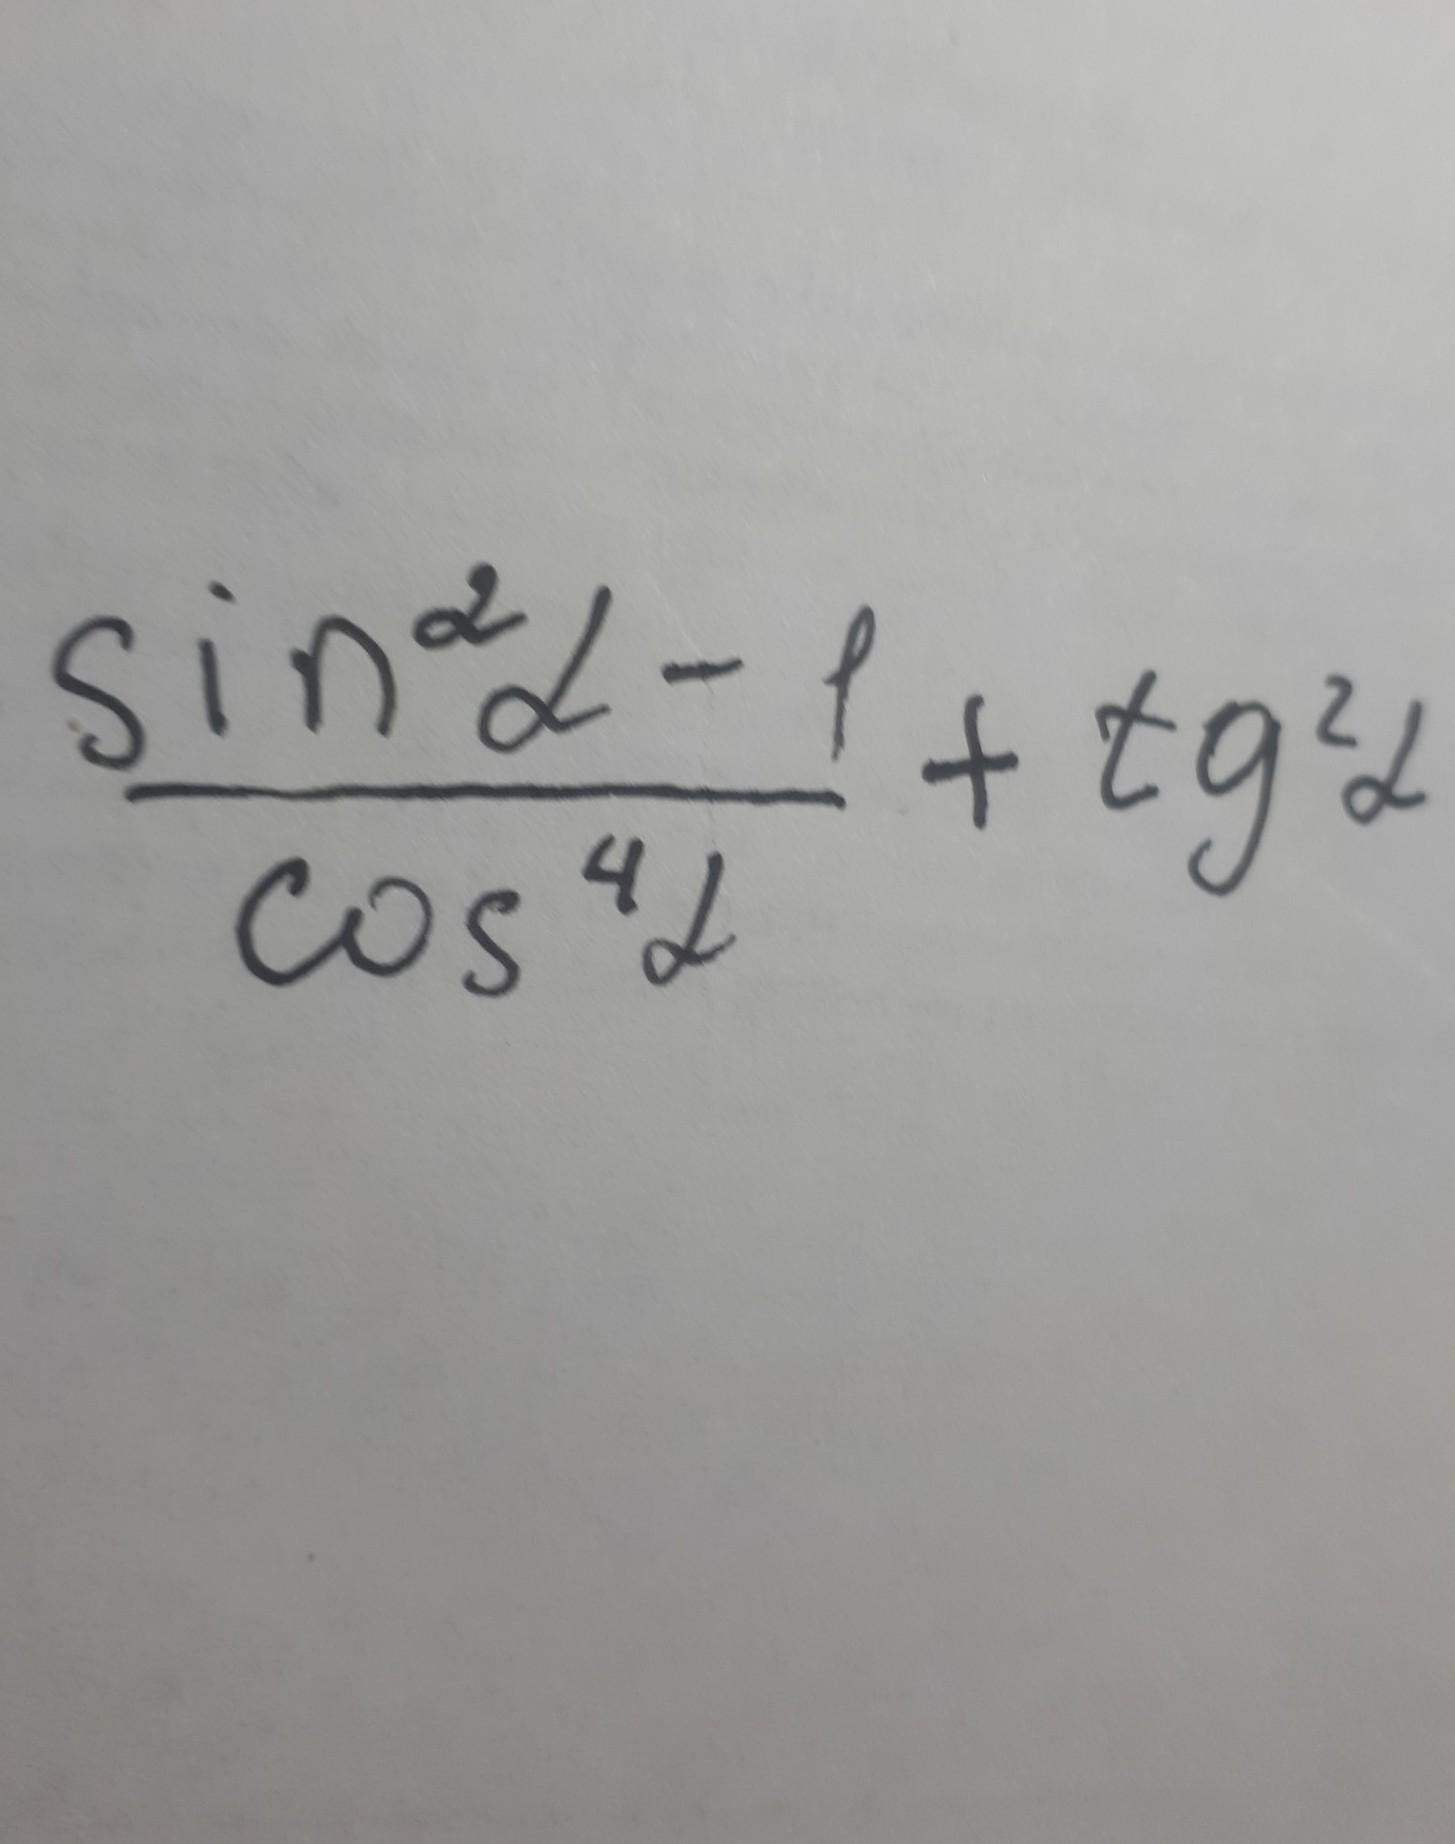 sin²α - 1
cos⁴α + tg²α